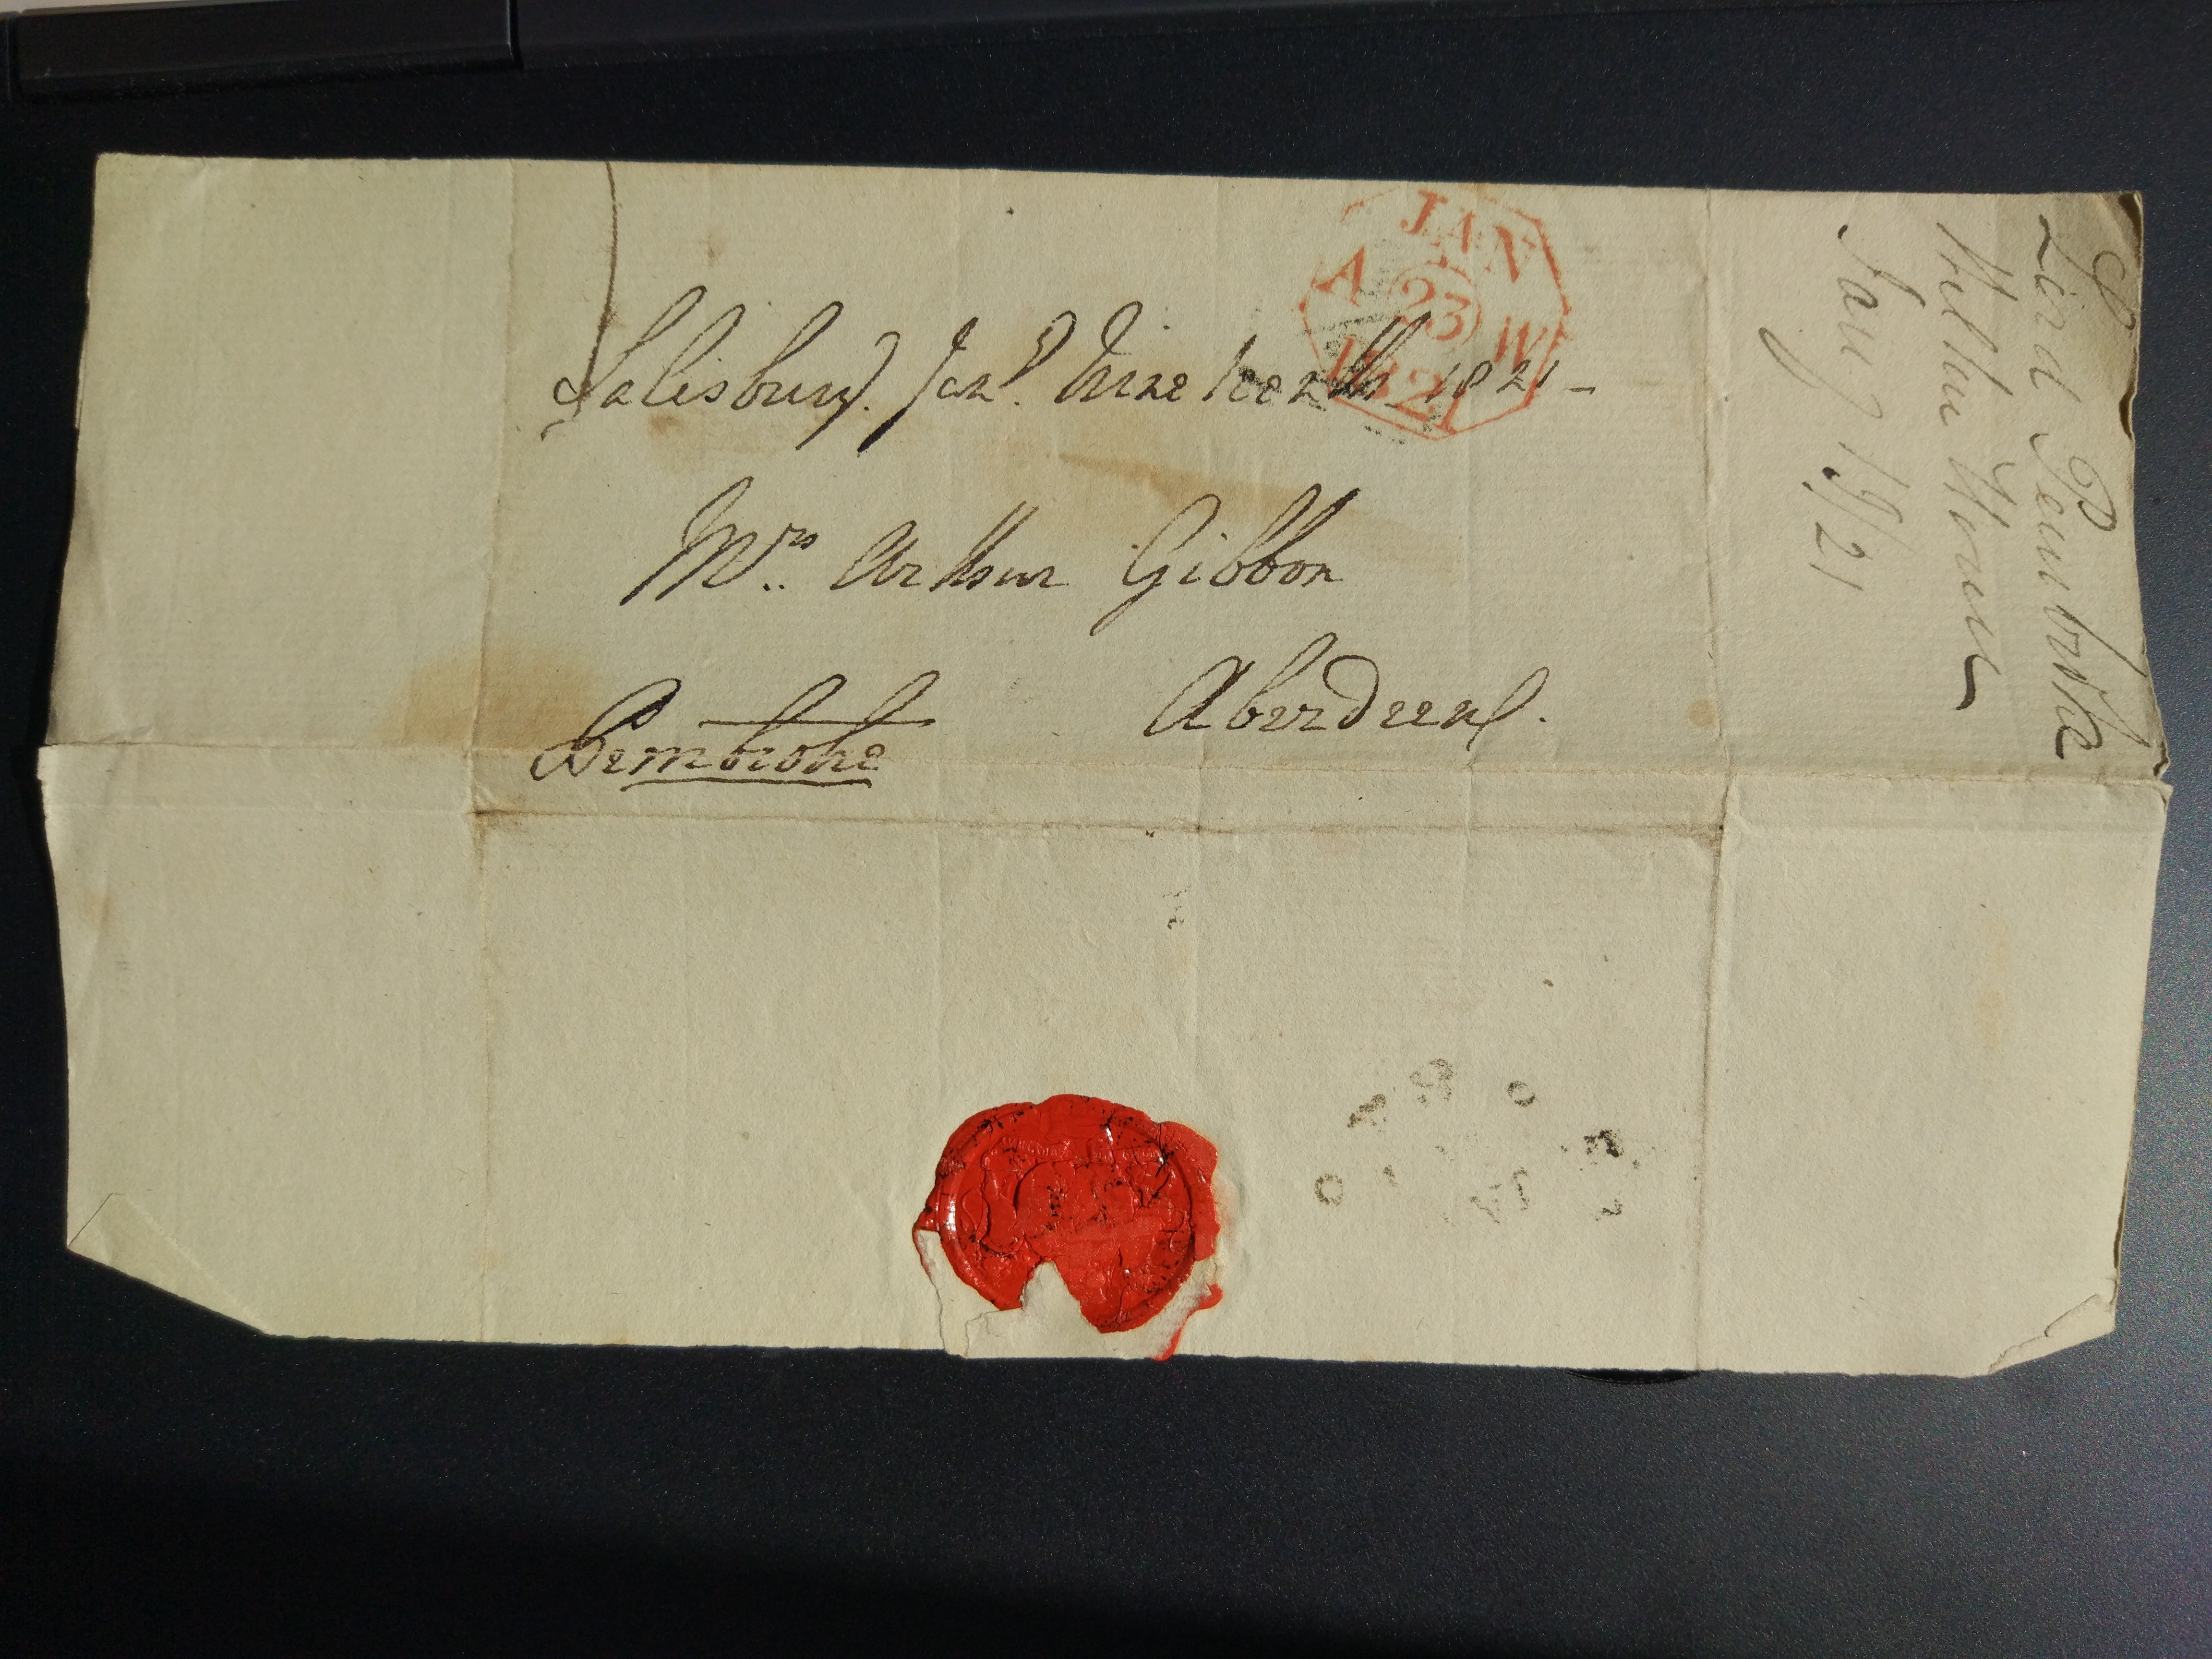 Salisbury. Jan.y Nineteenth 1821 –
Mrs. Arthur Gibbon
Aberdeen.
Pembroke
JAN
A 23 W
1821
Lord Pembroke
Wilton House
Jany 1821